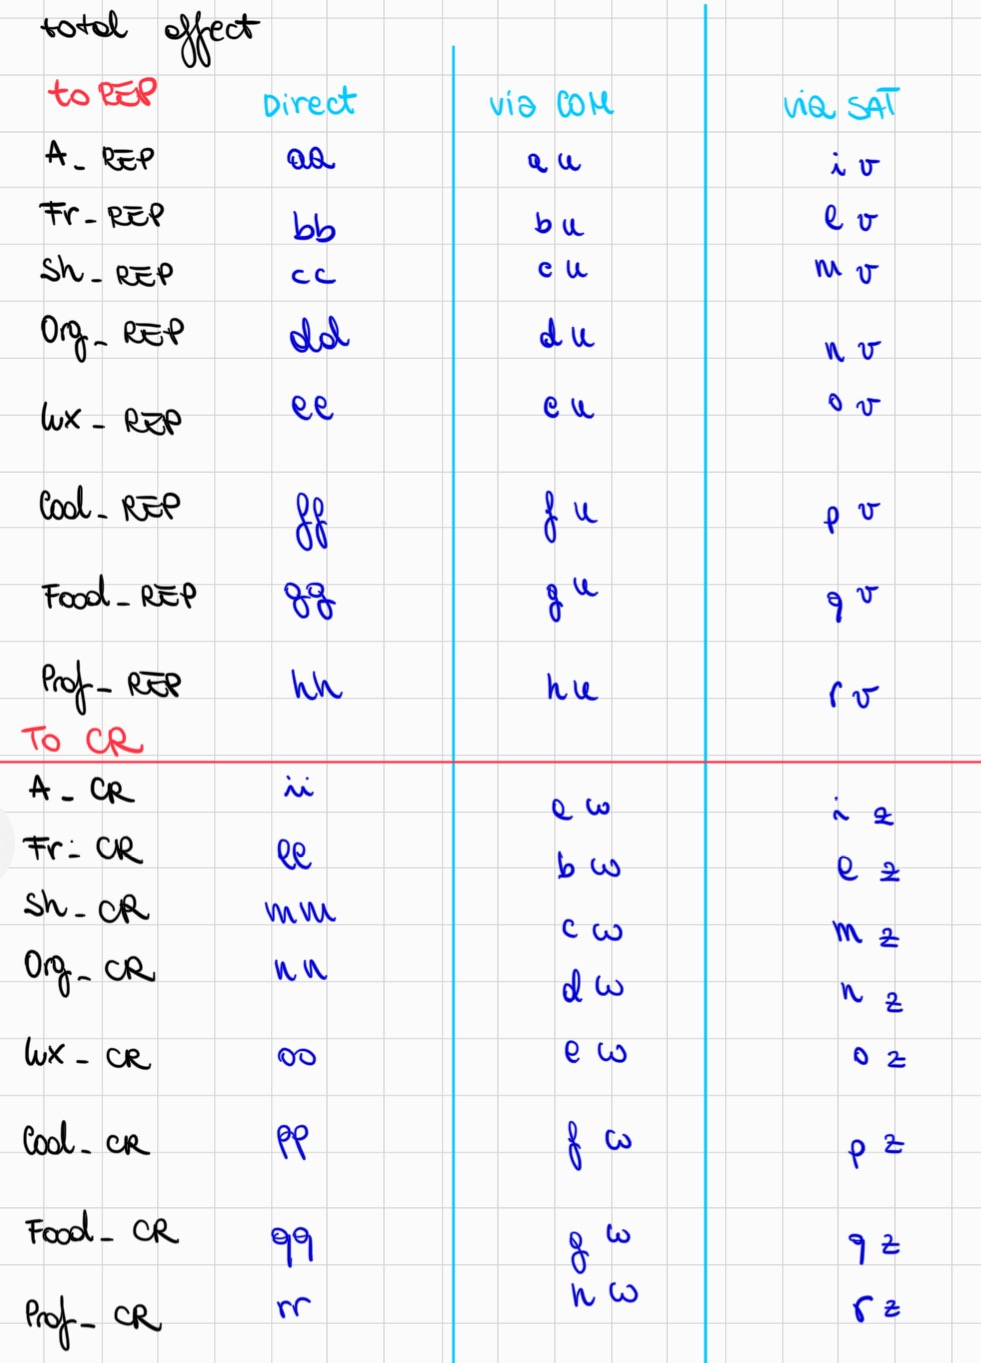 total effect
to REP Direct via COM via SAT
A_ REP aa a u i v
Fr_ REP bb b u l v
Sh_ REP cc c u m v
Org_ REP dd d u n v
lux_ REP ee e u o v
Cool_ REP ff f u p v
Food_ REP gg g u q v
Prof_ REP hh h u r v
To CR
A_ CR ii a w i z
Fr_ CR ll b w l z
Sh_ CR mm c w m z
Org_ CR nn d w n z
lux_ CR oo e w o z
Cool_ CR pp f w p z
Food_ CR qq g w q z
Prof_ CR rr h w r z